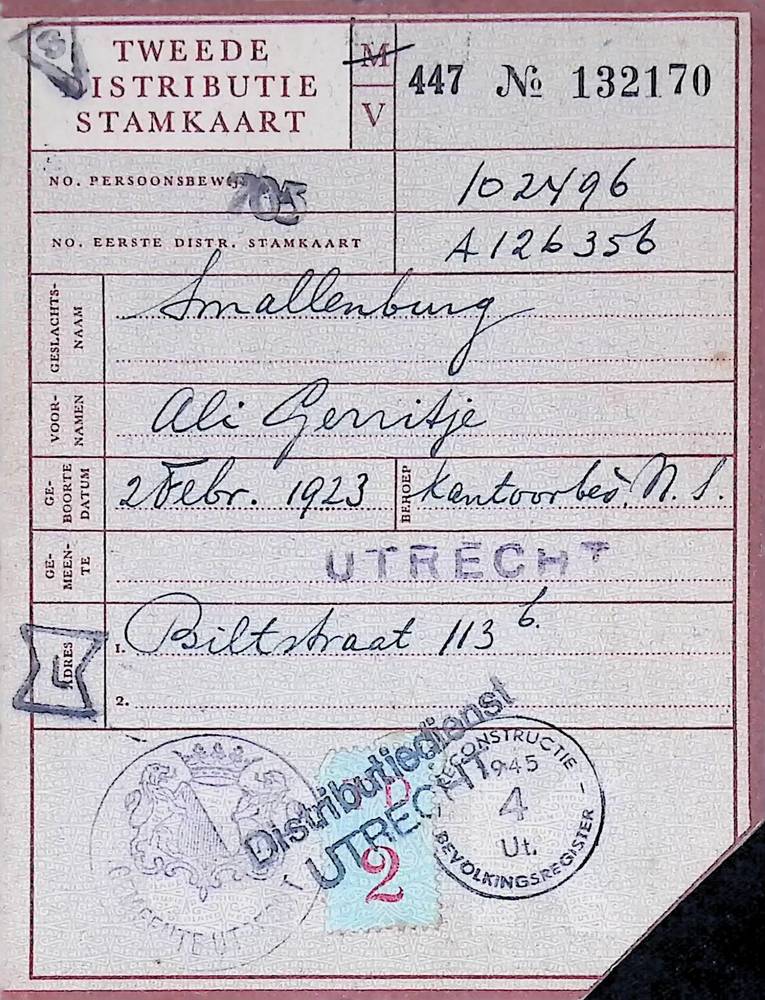 TWEEDE
DISTRIBUTIE
STAMKAART
M
V
447 № 132170
NO. PERSOONSBEWIJS
102496
NO. EERSTE DISTR. STAMKAART
A 126356
GESLACHTS-
NAAM
Smallenburg
VOOR-
NAMEN
Ali Gerritje
GE-
BOORTE
DATUM
2 Febr. 1923
BEROEP
Kantoorbed. N. S.
GE-
MEEN-
TE
UTRECHT
ADRES
1. Biltstraat 113 b.
2.
Distributiedienst
UTRECHT
2
GEMEENTE UTRECHT
RECONSTRUCTIE
1945
4
Ut.
BEVOLKINGSREGISTER